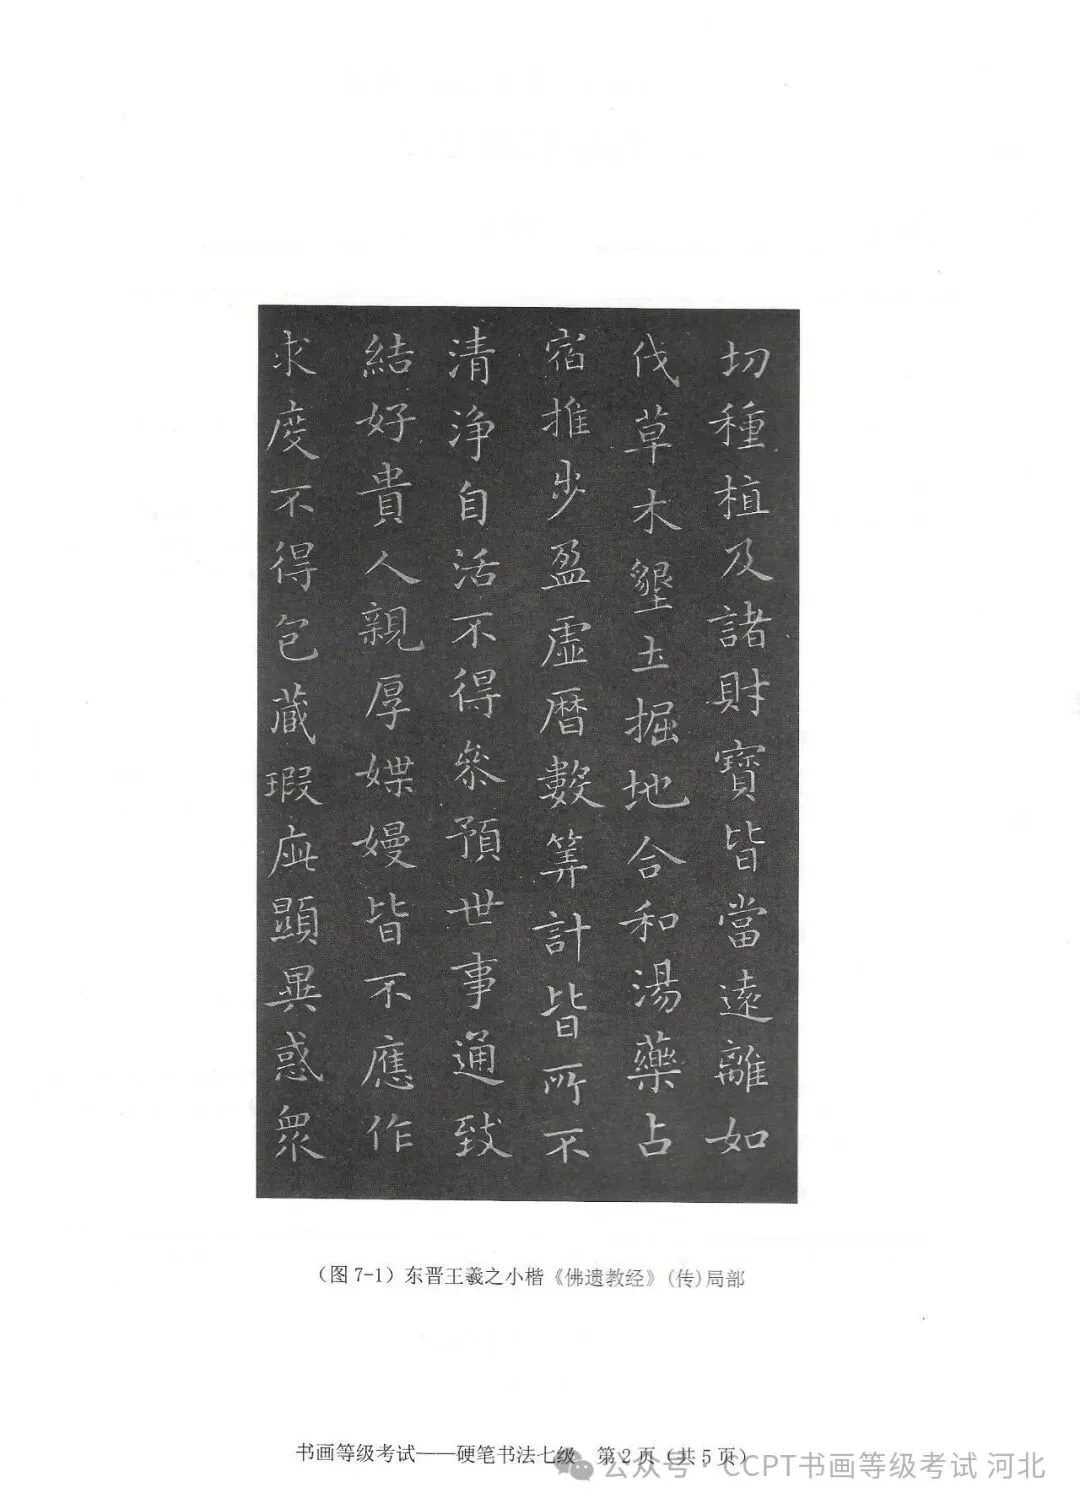 切種植及諸財寶皆當遠離如
伐草木墾土掘地合和湯藥占
宿推步盈虛曆數筭計皆所不
清淨自活不得叅預世事通致
結好貴人親厚媟嫚皆不應作
求度不得包藏瑕疵顯異惑衆
（图 7-1）东晋王羲之小楷《佛遗教经》(传)局部
书画等级考试——硬笔书法七级 第 2 页（共 5 页）
公众号·CCPT书画等级考试 河北